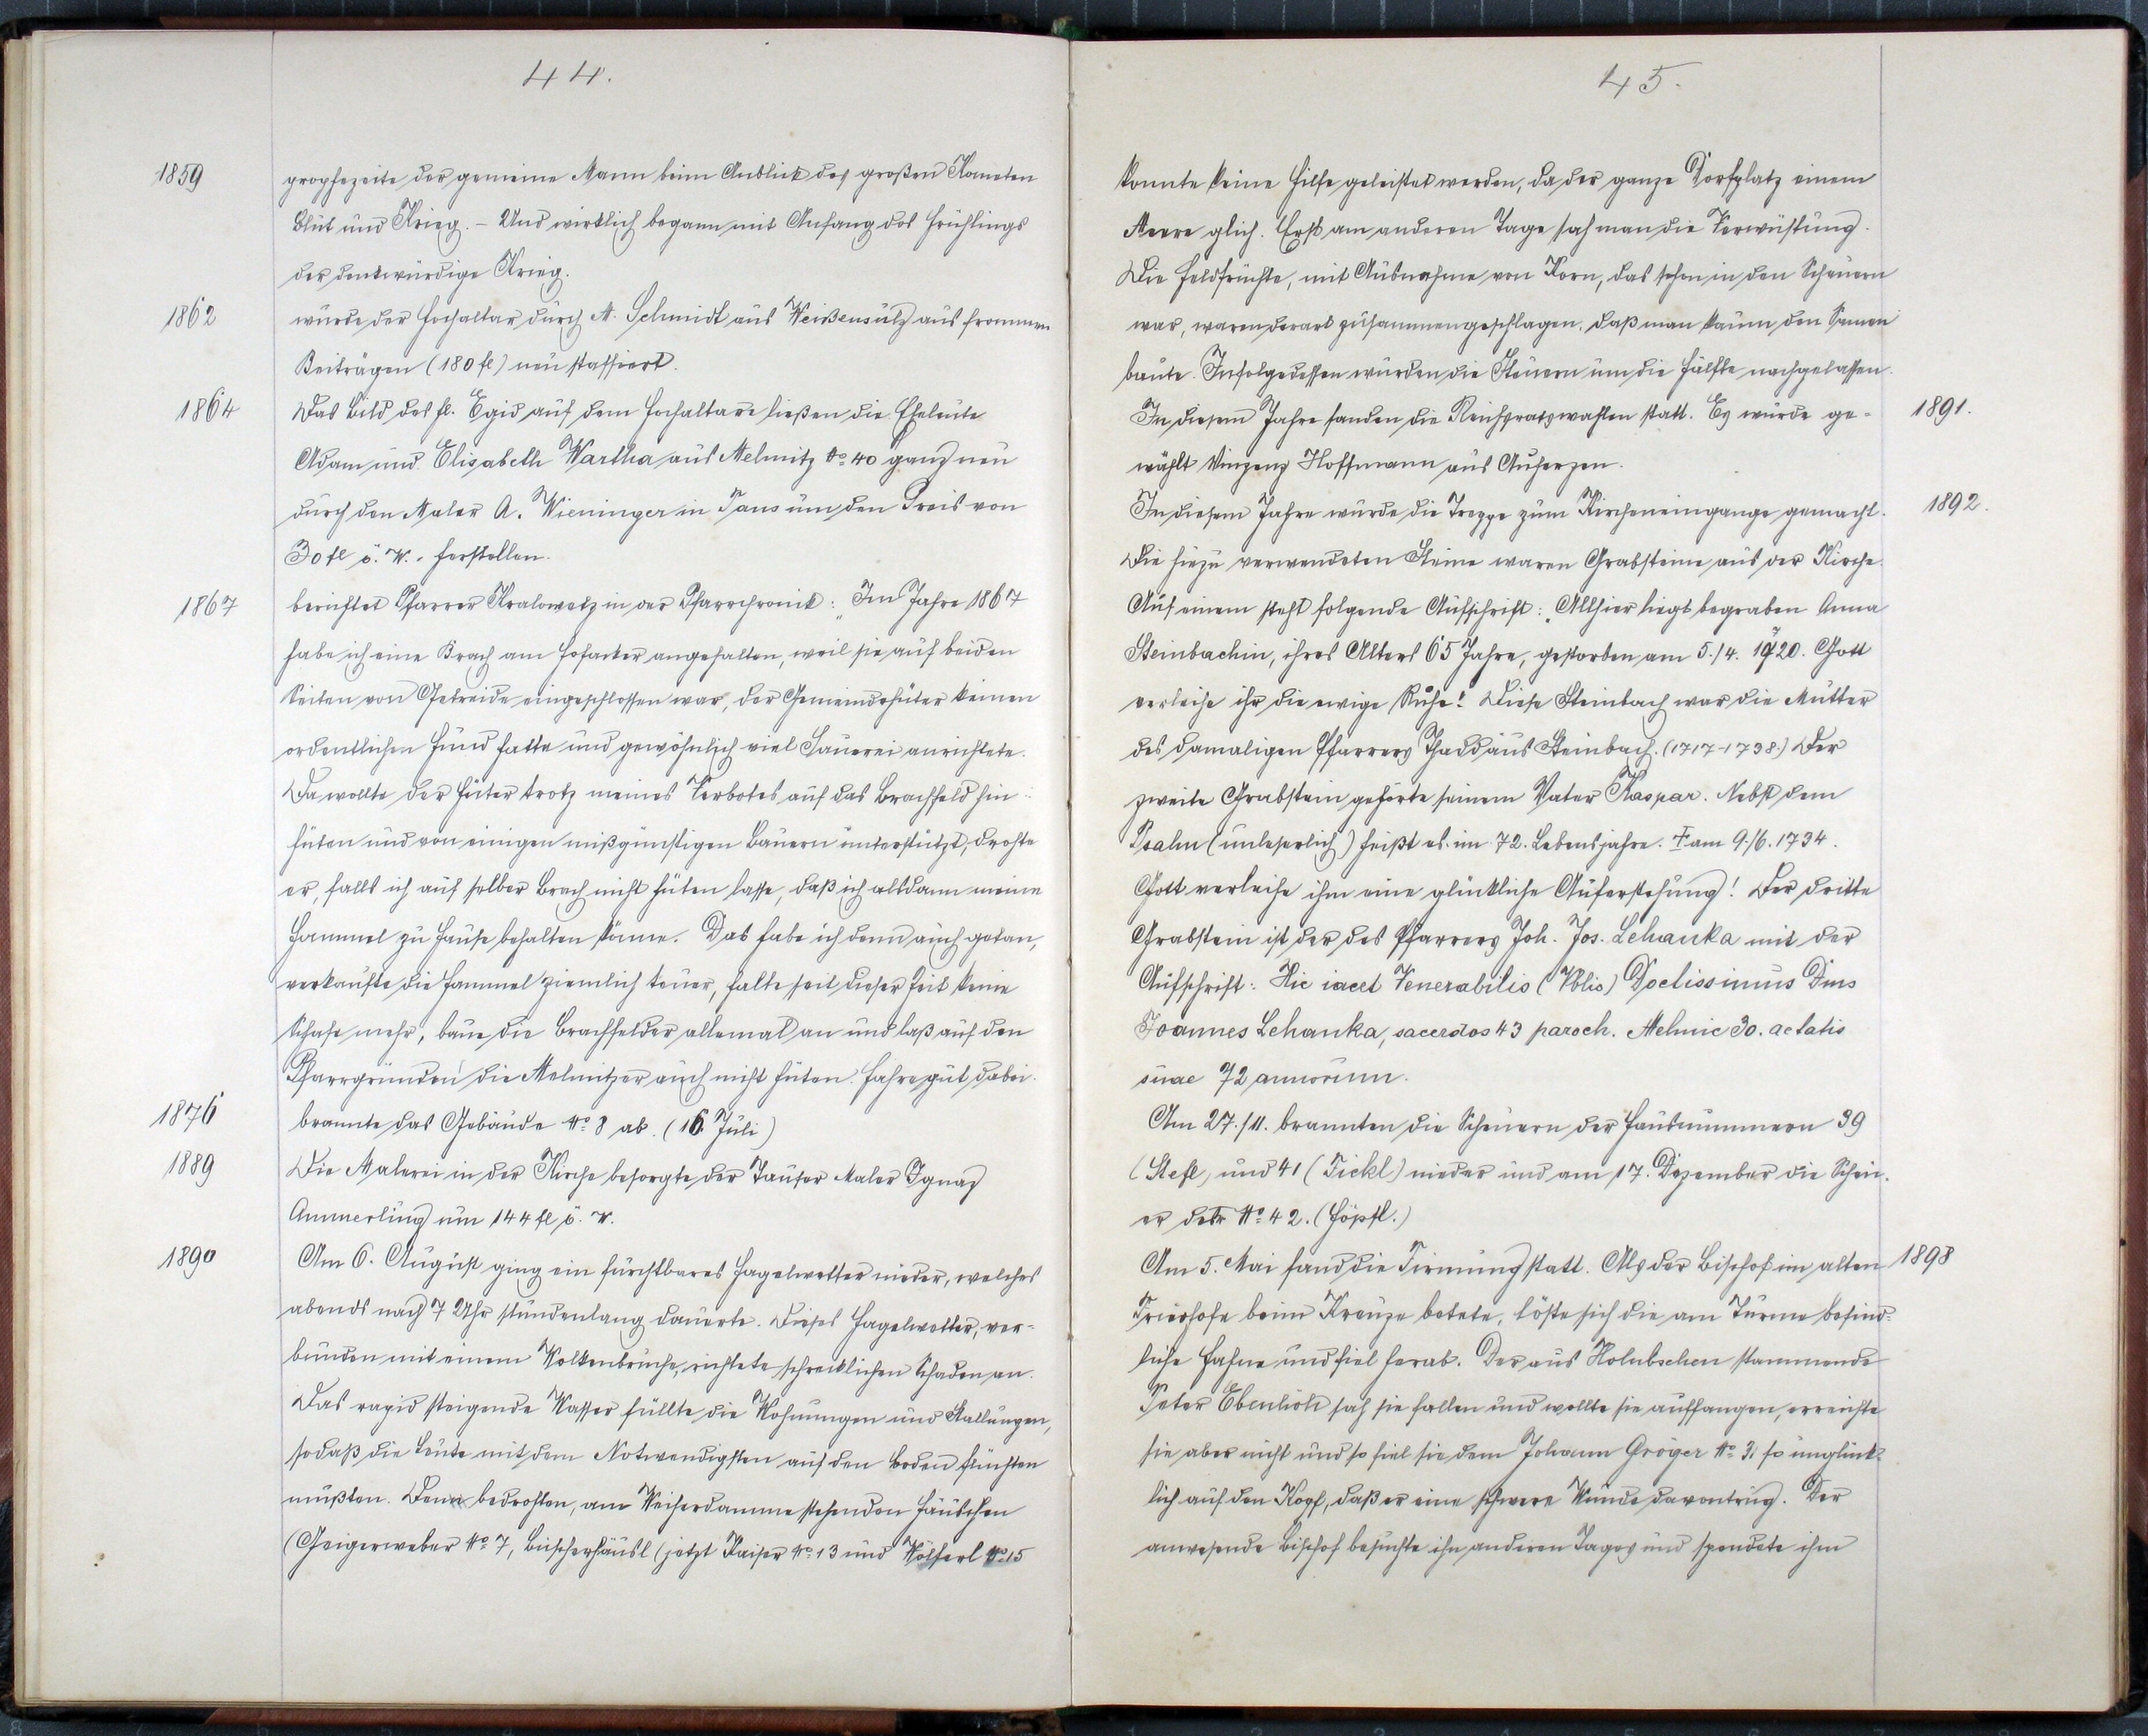 44.
1859 prophezeite der gemeine Mann beim Anblick des großen Kometen
Blut und Krieg. – Und wirklich begann mit Anfang des Frühlings
der denkwürdige Krieg.
1862 wurde der Hochaltar durch A. Schmidt aus Weißensulz aus frommen
Beiträgen (180 fl) neu staffiert.
1864 Das Bild des hl. Egid auf dem Hochaltare ließen die Eheleute
Adam und Elisabeth Wartha aus Melmitz No 40 ganz neu
durch den Maler A. Wieninger in Taus um den Preis von
30 fl ö. W. herstellen.
1867 berichtet Pfarrer Kralowetz in der Pfarrchronik: „Im Jahre 1867
habe ich eine Brach am Hofacker angehalten, weil sie auf beiden
Seiten von Getreide eingeschlossen war, der Gemeindehüter keinen
ordentlichen Hund hatte und gewöhnlich viel Sauerei anrichtete.
Da wollte der Hüter trotz meines Verbotes auf das Brachfeld hin-
hüten und von einigen mißgünstigen Bauern unterstützt, drohte
er, falls ich auf selber Brach nicht hüten lasse, daß ich alsdann meine
Hammel zu Hause behalten könne. Das habe ich denn auch getan,
verkaufte die Hammel ziemlich teuer, halte seit dieser Zeit keine
Schafe mehr, baue die Brachfelder allemal an und laß auf den
Pfarrgründen die Melmitzer auch nicht hüten. Fahre gut dabei.
1876 brannte das Gebäude No 8 ab. (16. Juli)
1889 Die Malerei in der Kirche besorgte der Tauser Maler Ignaz
Ammerling um 144 fl ö. W.
1890 Am 6. August ging ein furchtbares Hagelwetter nieder, welches
abends nach 7 Uhr stundenlang dauerte. Dieses Hagelwetter, ver-
bunden mit einem Wolkenbruche, richtete schrecklichen Schaden an.
Das rapid steigende Wasser füllte die Wohnungen und Stallungen,
sodaß die Leute mit dem Notwendigsten auf den Boden flüchten
mußten. Den bedrohten, am Weiherdamme stehenden Häuschen
(Geigerweber No 7, Bischerhäusl (jetzt Kaiser No 13 und Wölferl No 15
45.
konnte keine Hilfe geleistet werden, da der ganze Dorfplatz einem
Meere glich. Erst am anderen Tage sah man die Verwüstung.
Die Feldfrüchte, mit Ausnahme von Korn, das schon in den Scheuern
war, waren derart zusammengeschlagen, daß man kaum den Samen
baute. Infolgedessen wurden die Steuern um die Hälfte nachgelassen.
In diesem Jahre fanden die Reichsratswahlen statt. Es wurde ge- 1891.
wählt Vinzenz Hoffmann aus Auherzen.
In diesem Jahre wurde die Treppe zum Kircheneingange gemacht. 1892.
Die hiezu verwendeten Steine waren Grabsteine aus der Kirche.
Auf einem steht folgende Aufschrift: „Allhier liegt begraben Anna
Steinbachin, ihres Alters 65 Jahre, gestorben am 5./4. 1720. Gott
verleihe ihr die ewige Ruhe! Diese Steinbach war die Mutter
des damaligen Pfarrers Thaddäus Steinbach. (1717-1738.) Der
zweite Grabstein gehörte seinem Vater Kaspar. Nebst dem
Psalm (unleserlich) heißt es im 72. Lebensjahre. † am 9./6. 1734.
Gott verleihe ihm eine glückliche Auferstehung! Der dritte
Grabstein ist der des Pfarrers Joh. Jos. Lehanka mit der
Aufschrift: Hic iacet Venerabilis (Vblis) Doctissimus Dms
Joannes Lehanka, sacerdos 43 paroch. Melmic 30. aetatis
suae 72 annorum.
Am 27./11. brannten die Scheuern der Hausnummern 39
(Stefl) und 41 (Tickl) nieder und am 17. Dezember die Scheu-
er des No 42. (Höpfl.)
Am 5. Mai fand die Firmung statt. Als der Bischof im alten 1898
Friedhofe beim Kreuze betete, löste sich die am Turme befind-
liche Fahne und fiel herab. Der aus Holubschen stammende
Peter Ebenhöh sah sie fallen und wollte sie auffangen, erreichte
sie aber nicht und so fiel sie dem Johann Gröger No 31 so unglück-
lich auf den Kopf, daß er eine schwere Wunde davontrug. Der
anwesende Bischof besuchte ihn anderen Tages und spendete ihm